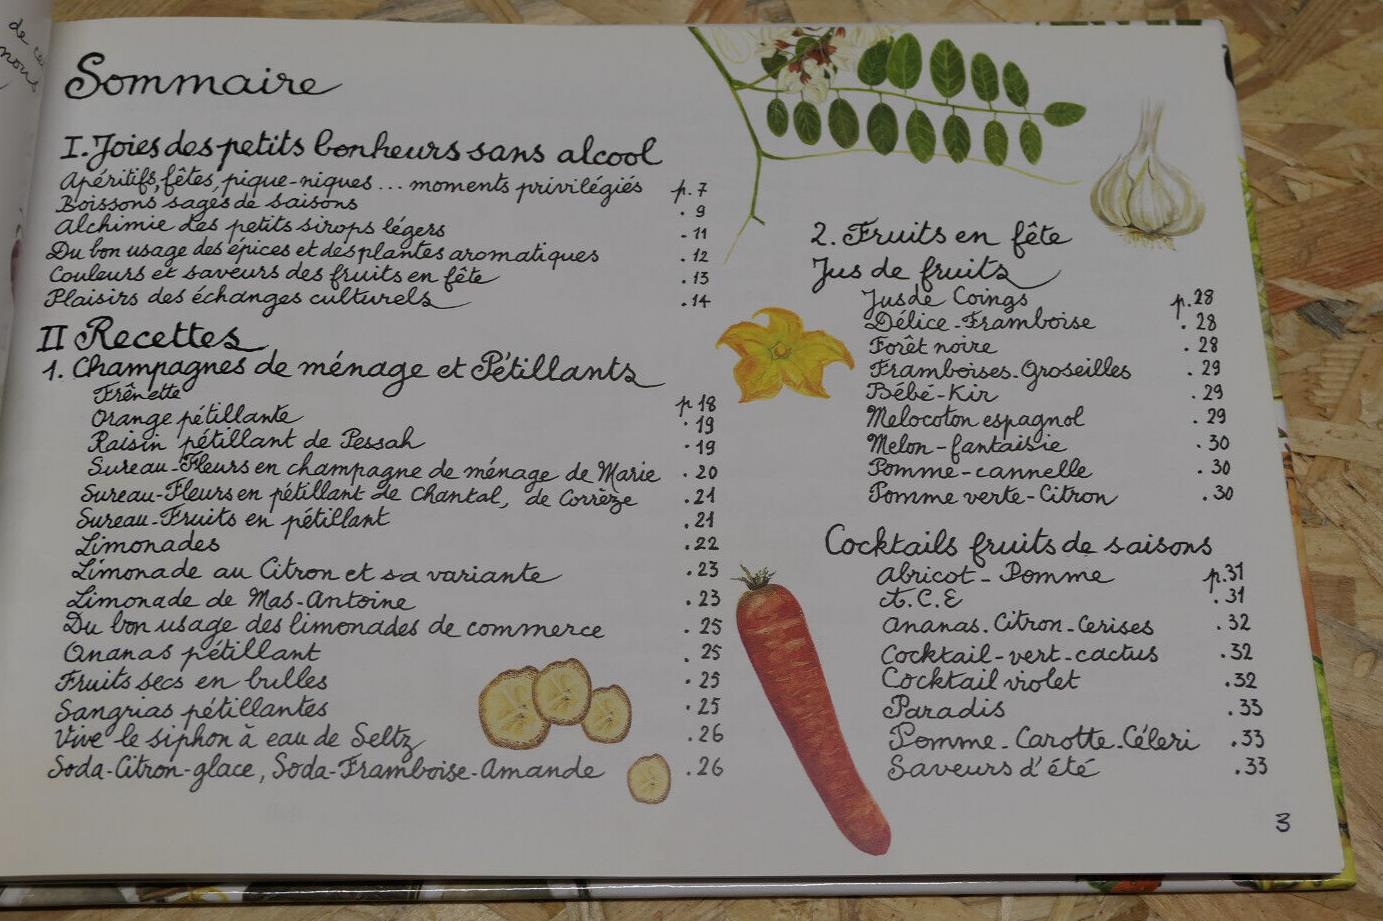 de
nous
Sommaire
I. Joies des petits bonheurs sans alcool
Apéritifs, fêtes, pique-niques... moments privilégiés p.7
Boissons sages de saisons . 9
Alchimie des petits sirops légers - 11
Du bon usage des épices et des plantes aromatiques . 12
Couleurs et saveurs des fruits en fête . 13
Plaisirs des échanges culturels . 14
II Recettes
1. Champagnes de ménage et Pétillants
Frênette p 18
Orange pétillante . 19
Raisin pétillant de Pessah . 19
Sureau-Fleurs en champagne de ménage de Marie . 20
Sureau-Fleurs en pétillant de Chantal, de Corrèze . 21
Sureau-Fruits en pétillant . 21
Limonades . 22
Limonade au Citron et sa variante . 23
Limonade de Mas-Antoine . 23
Du bon usage des limonades de commerce . 25
Ananas pétillant . 25
Fruits secs en bulles . 25
Sangrias pétillantes . 25
Vive le siphon à eau de Seltz . 26
Soda-Citron-glace, Soda-Framboise-Amande . 26
2. Fruits en fête
Jus de fruits
Jus de Coings p.28
Délice-Framboise . 28
Forêt noire . 28
Framboises-Groseilles . 29
Bébé-Kir . 29
Melocoton espagnol . 29
Melon-fantaisie . 30
Pomme-cannelle . 30
Pomme verte-Citron . 30
Cocktails fruits de saisons
Abricot-Pomme p.31
A.C.E . 31
Ananas-Citron-Cerises . 32
Cocktail-vert-cactus . 32
Cocktail violet . 32
Paradis . 33
Pomme-Carotte-Céleri . 33
Saveurs d'été . 33
3